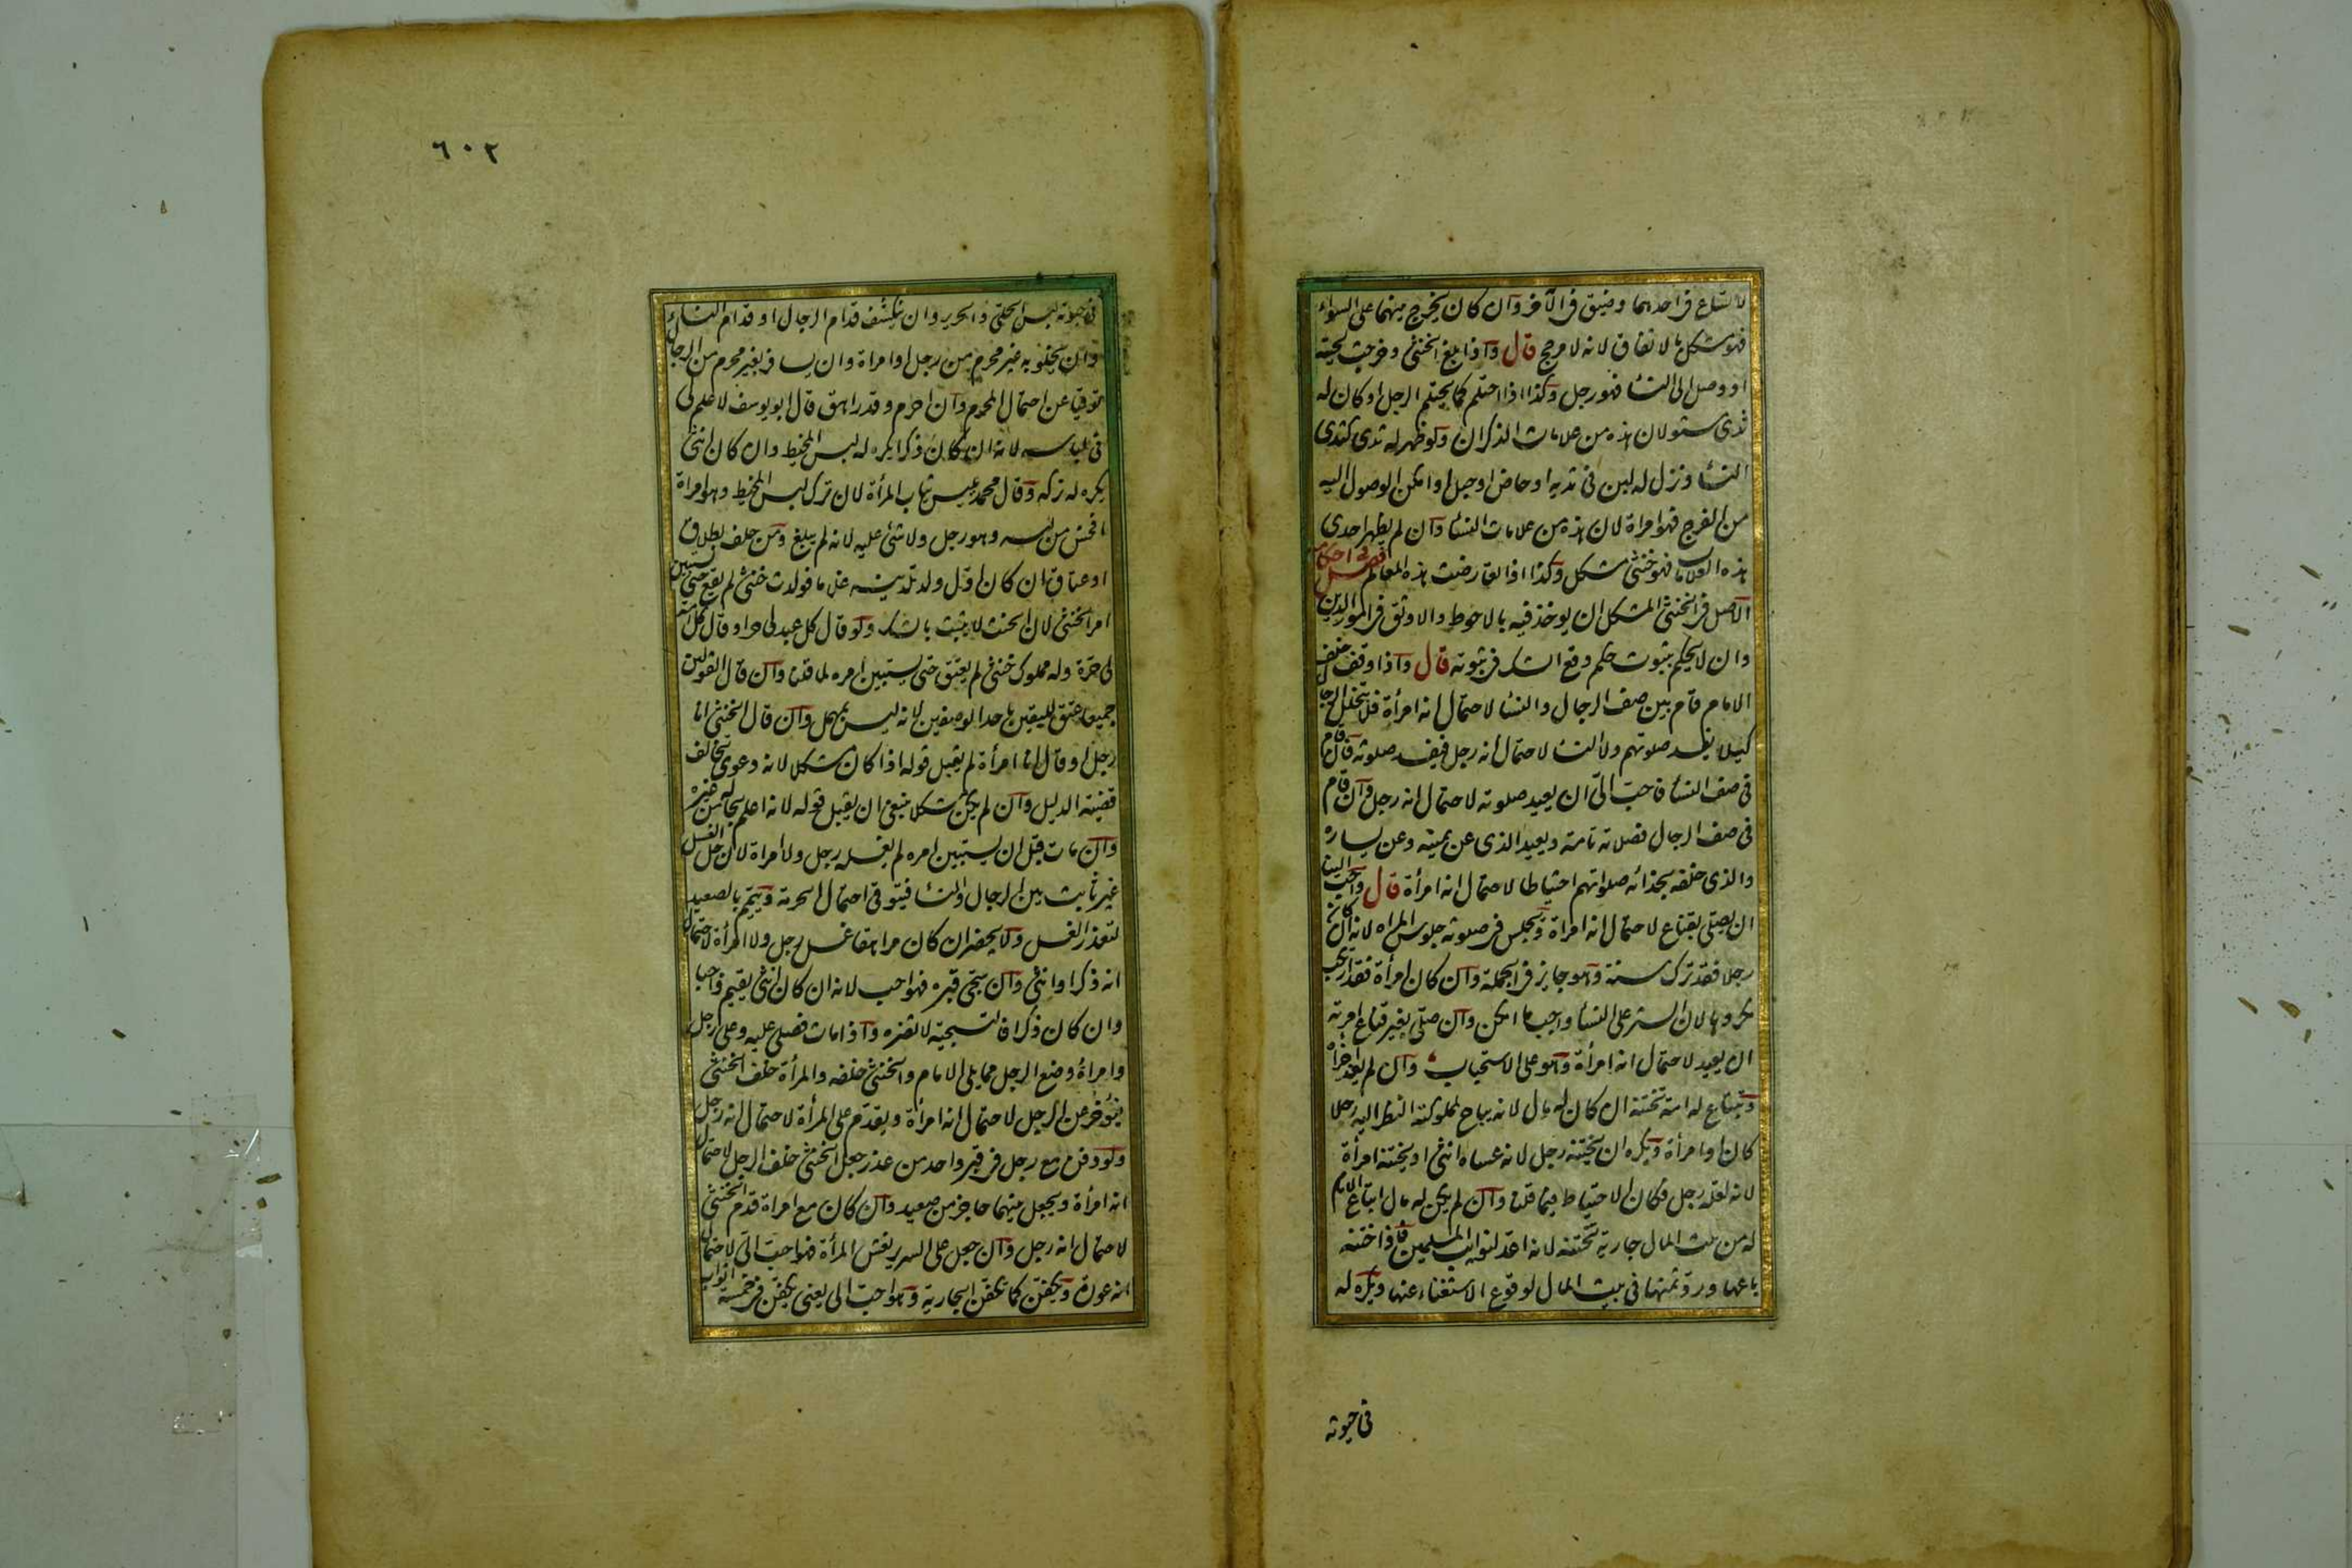 لاتساع فى احدهما وضيق فى الآخر وان كان يخرج منهما على السواء
فهو مشكل بالاتفاق لانه لا مرجح قال واذا بلغ الخنثى وخرجت لحيته
او وصل الى النسا فهو رجل وكذا اذا احتلم كما يحتلم الرجل او كان له
ثدى مستو لان هذه من علامات الذكران ولو ظهر له ثدى كثدى
النسا او نزل له لبن فى ثديه او حاض او حبل او امكن الوصول اليه
من الفرج فهو امراة لان هذه من علامات النسا وان لم يظهر احدى
هذه العلامات فهو خنثى مشكل وكذا اذا تعارضت هذه المعالم فصل فى احكامه
الاصل فى الخنثى المشكل ان يوخذ فيه بالاحوط والاوثق فى امور الدين
وان لا يحكم بثبوت حكم وقع الشك فى ثبوته قال واذا وقف خلف
الامام قام بين صف الرجال والنسا لاحتمال انه امرأة فلا يتخلل الرجال
كيلا يفسد صلوتهم ولا النسا لاحتمال انه رجل فيفسد صلوته فان قام
فى صف النسا فاحب الىّ ان يعيد صلوته لاحتمال انه رجل وان قام
فى صف الرجال فصلاته تامة ويعيد الذى عن يمينه وعن يساره
والذى خلفه بحذائه صلواتهم احتياطا لاحتمال انه امرأة قال واحب الينا
ان يصلى بقناع لاحتمال انه امراة ويجلس فى صلوته جلوس المراه لانه ان كان
رجلا فقد ترك سنة وهو جايز فى الجملة وان كان امرأة فقد ارتكب
مكروها لان الستر على النسا واجب ما امكن وان صلى بغير قناع امرته
ان يعيد لاحتمال انه امرأة وهو على الاستحباب وان لم يعد اجزاه
وتبتاع له امة تختنه ان كان له مال لانه يباح لمملوكته النظر اليه رجلا
كان او امرأة ويكره ان يختنه رجل لانه عساه انثى او يختنه امرأة
لانه لعله رجل فكان الاحتياط فيما قلنا وان لم يكن له مال ابتاع الامام
له من بيت المال جارية تختنه لانه اعد لنوايب المسلمين فاذا ختنه
باعها ورد ثمنها فى بيت المال لوقوع الاستغناء عنها ويكره له
فى حيوته
٦٠٢
فى حيوته لبس الحلى والحرير وان ينكشف قدام الرجال او قدام النساء
وان يخلو به غير محرم من رجل او امراة وان يسافر بغير محرم من الرجال
توقيا عن احتمال المحرم وان احرم وقد راهق قال ابو يوسف لا علم لى
فى لباسه لانه ان كان ذكرا يكره له لبس المخيط وان كان انثى
يكره له تركه وقال محمد يلبس ثياب المرأة لان ترك لبس المخيط وهو امراة
افحش من لبسه وهو رجل ولا شئ عليه لانه لم يبلغ ومن حلف بطلاق
او عتاق ان كان اول ولد تلدينه غلاما فولدت خنثى لم يقع حتى يستبين
امر الخنثى لان الحنث لا يثبت بالشك ولو قال كل عبد لى حر او قال كل امة
لى حرة وله مملوك خنثى لم يعتق حتى يستبين امره لما قلنا وان قال القولين
جميعا عتق لليقين باحد الوصفين لانه ليس بمهمل وان قال الخنثى انا
رجل او قال انا امرأة لم يقبل قوله اذا كان مشكلا لانه دعوى تخالف
قضية الدليل وان لم يكن مشكلا ينبغى ان يقبل قوله لانه اعلم بحاله من غيره
وان مات قبل ان يستبين امره لم يغسله رجل ولا امراة لان حل الغسل
غير ثابت بين الرجال والنسا فيتوقى احتمال الحرمة وييمم بالصعيد
لتعذر الغسل ولا يحضر ان كان مراهقا غسل رجل ولا امرأة لاحتمال
انه ذكر او انثى وان سجى قبره فهو احب لانه ان كان انثى يقيم واجبا
وان كان ذكرا فالتسجية لا تضره واذا مات فصلى عليه وعلى رجل
وامراة وضع الرجل مما يلى الامام والخنثى خلفه والمرأة خلف الخنثى
فيؤخر عن الرجل لاحتمال انه امرأة ويقدم على المرأة لاحتمال انه رجل
ولو دفن مع رجل فى قبر واحد من عذر جعل الخنثى خلف الرجل لاحتمال
انه امرأة ويجعل بينهما حاجز من صعيد وان كان مع امراة قدم الخنثى
لاحتمال انه رجل وان جعل على السرير نعش المرأة فهو احب الى لاحتمال
انه عورة ويكفن كما تكفن الجارية وهو احب الى يعنى يكفن فى خمسة اثواب